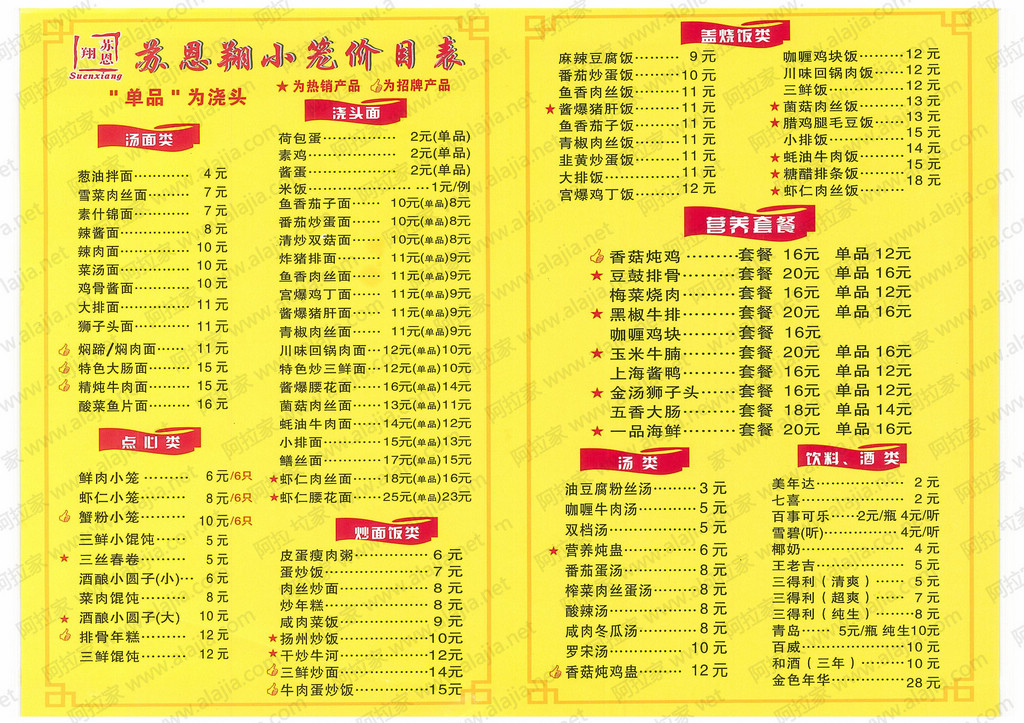 苏恩翔
Suenxiang
苏恩翔小笼价目表
★为热销产品 为招牌产品
"单品"为浇头
汤面类
葱油拌面 4元
雪菜肉丝面 7元
素什锦面 7元
辣酱面 8元
辣肉面 10元
菜汤面 10元
鸡骨酱面 10元
大排面 11元
狮子头面 11元
焖蹄/焖肉面 11元
特色大肠面 15元
精炖牛肉面 15元
酸菜鱼片面 16元
点心类
鲜肉小笼 6元/6只
虾仁小笼 8元/6只
蟹粉小笼 10元/6只
三鲜小馄饨 5元
★三丝春卷 5元
酒酿小圆子(小) 6元
菜肉馄饨 8元
★酒酿小圆子(大) 10元
排骨年糕 12元
三鲜馄饨 12元
浇头面
荷包蛋 2元(单品)
素鸡 2元(单品)
酱蛋 2元(单品)
米饭 1元/例
鱼香茄子面 10元(单品)8元
番茄炒蛋面 10元(单品)8元
清炒双菇面 10元(单品)8元
炸猪排面 11元(单品)9元
鱼香肉丝面 11元(单品)9元
宫爆鸡丁面 11元(单品)9元
酱爆猪肝面 11元(单品)9元
青椒肉丝面 11元(单品)9元
川味回锅肉面 12元(单品)10元
特色炒三鲜面 12元(单品)10元
酱爆腰花面 16元(单品)14元
菌菇肉丝面 13元(单品)11元
蚝油牛肉面 14元(单品)12元
小排面 15元(单品)13元
鳝丝面 17元(单品)15元
★虾仁肉丝面 18元(单品)16元
★虾仁腰花面 25元(单品)23元
炒面饭类
皮蛋瘦肉粥 6元
蛋炒饭 7元
肉丝炒面 8元
炒年糕 8元
咸肉菜饭 9元
★扬州炒饭 10元
★干炒牛河 12元
三鲜炒面 14元
牛肉蛋炒饭 15元
盖烧饭类
麻辣豆腐饭 9元
番茄炒蛋饭 10元
鱼香肉丝饭 11元
★酱爆猪肝饭 11元
鱼香茄子饭 11元
青椒肉丝饭 11元
韭黄炒蛋饭 11元
大排饭 11元
宫爆鸡丁饭 12元
咖喱鸡块饭 12元
川味回锅肉饭 12元
三鲜饭 12元
★菌菇肉丝饭 13元
★腊鸡腿毛豆饭 13元
小排饭 15元
★蚝油牛肉饭 14元
★糖醋排条饭 15元
★虾仁肉丝饭 18元
营养套餐
香菇炖鸡 套餐 16元 单品 12元
★豆鼓排骨 套餐 20元 单品 16元
梅菜烧肉 套餐 16元 单品 12元
★黑椒牛排 套餐 20元 单品 16元
咖喱鸡块 套餐 16元
★玉米牛腩 套餐 20元 单品 16元
上海酱鸭 套餐 16元 单品 12元
★金汤狮子头 套餐 16元 单品 12元
五香大肠 套餐 18元 单品 14元
★一品海鲜 套餐 20元 单品 16元
汤类
油豆腐粉丝汤 3元
咖喱牛肉汤 5元
双档汤 5元
★营养炖蛊 6元
番茄蛋汤 8元
榨菜肉丝蛋汤 8元
酸辣汤 8元
咸肉冬瓜汤 8元
罗宋汤 10元
香菇炖鸡蛊 12元
饮料、酒类
美年达 2元
七喜 2元
百事可乐 2元/瓶 4元/听
雪碧(听) 4元/听
椰奶 4元
王老吉 5元
三得利（清爽） 5元
三得利（超爽） 7元
三得利（纯生） 8元
青岛 5元/瓶 纯生10元
百威 10元
和酒（三年） 10元
金色年华 28元
阿拉家 www.alajia.net